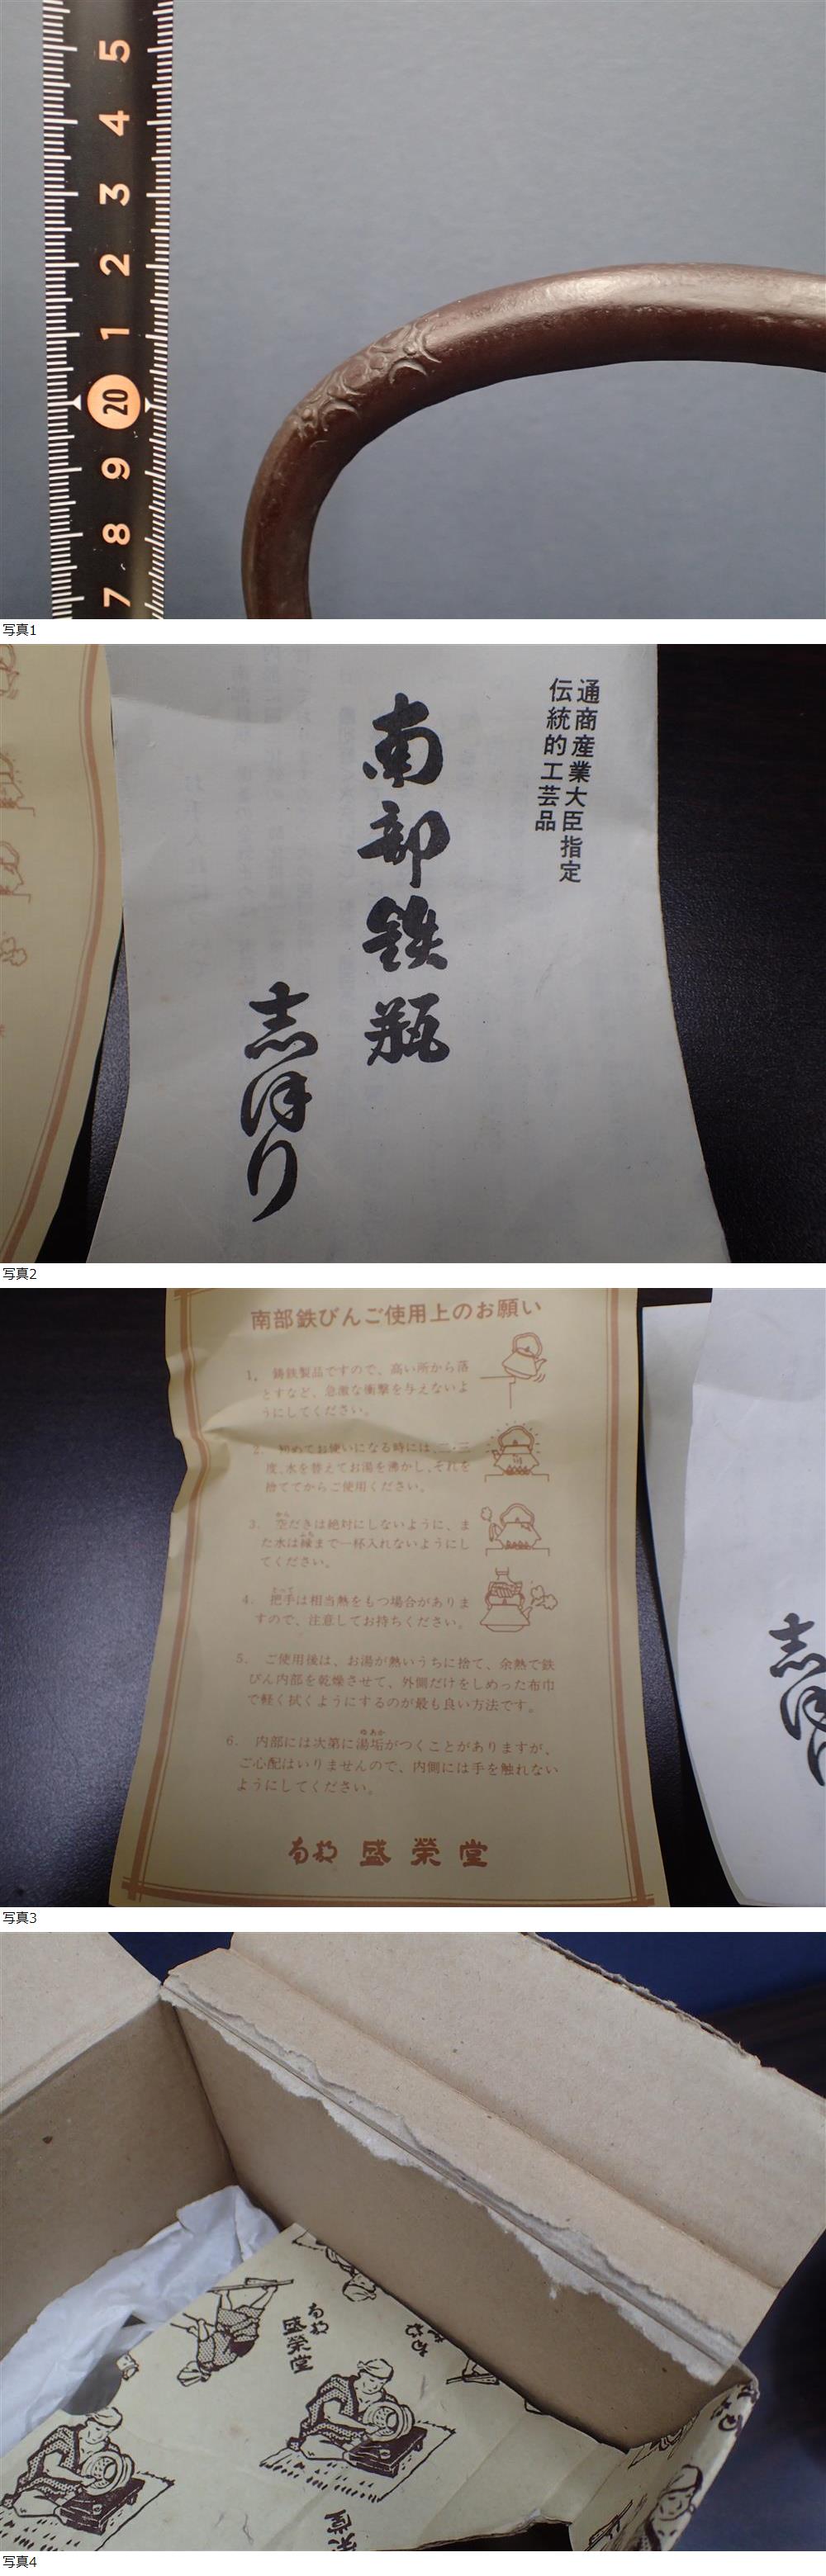 5
4
3
2
1
20
9
8
7
写真1
通商産業大臣指定
伝統的工芸品
南部鉄瓶
志ほり
写真2
南部鉄びんご使用上のお願い
1. 鋳鉄製品ですので、高い所から落
とすなど、急激な衝撃を与えないよ
うにしてください。
2. 初めてお使いになる時には、二・三
度、水を替えてお湯を沸かし、それを
捨ててからご使用ください。
3. 空だきは絶対にしないように、ま
た水は縁まで一杯入れないようにし
てください。
4. 把手は相当熱をもつ場合がありま
すので、注意してお持ちください。
5. ご使用後は、お湯が熱いうちに捨て、余熱で鉄
びん内部を乾燥させて、外側だけをしめった布巾
で軽く拭くようにするのが最も良い方法です。
6. 内部には次第に湯垢がつくことがありますが、
ご心配はいりませんので、内側には手を触れない
ようにしてください。
盛榮堂
志ほり
写真3
盛榮堂
写真4